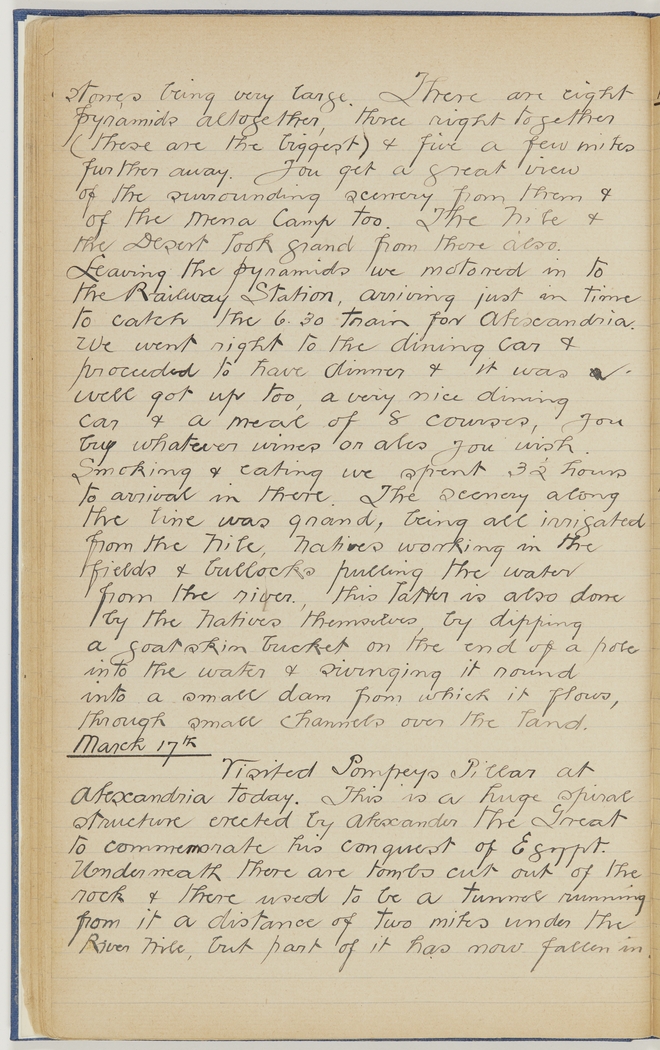 stones being very large. There are eight
pyramids altogether, three right together
(these are the biggest) & five a few miles
further away. You get a great view
of the surrounding scenery from them &
of the Mena Camp too. The Nile &
the Desert look grand from there also.
Leaving the pyramids we motored in to
the Railway Station, arriving just in time
to catch the 6.30 train for Alexandria.
We went right to the dining car &
proceeded to have dinner & it was
well got up too, a very nice dining
car & a meal of 8 courses, you
buy whatever wines or ales you wish.
Smoking & eating we spent 3½ hours
to arrival in there. The scenery along
the line was grand, being all irrigated
from the Nile, Natives working in the
fields & bullocks pulling the water
from the river, this latter is also done
by the Natives themselves, by dipping
a goatskin bucket on the end of a pole
into the water & swinging it round
into a small dam from which it flows,
through small channels over the land.
March 17th
Visited Pompeys Pillar at
Alexandria today. This is a huge spiral
structure erected by Alexander the Great
to commemorate his conquest of Egypt.
Underneath there are tombs cut out of the
rock & there used to be a tunnel running
from it a distance of two miles under the
River Nile, but part of it has now fallen in